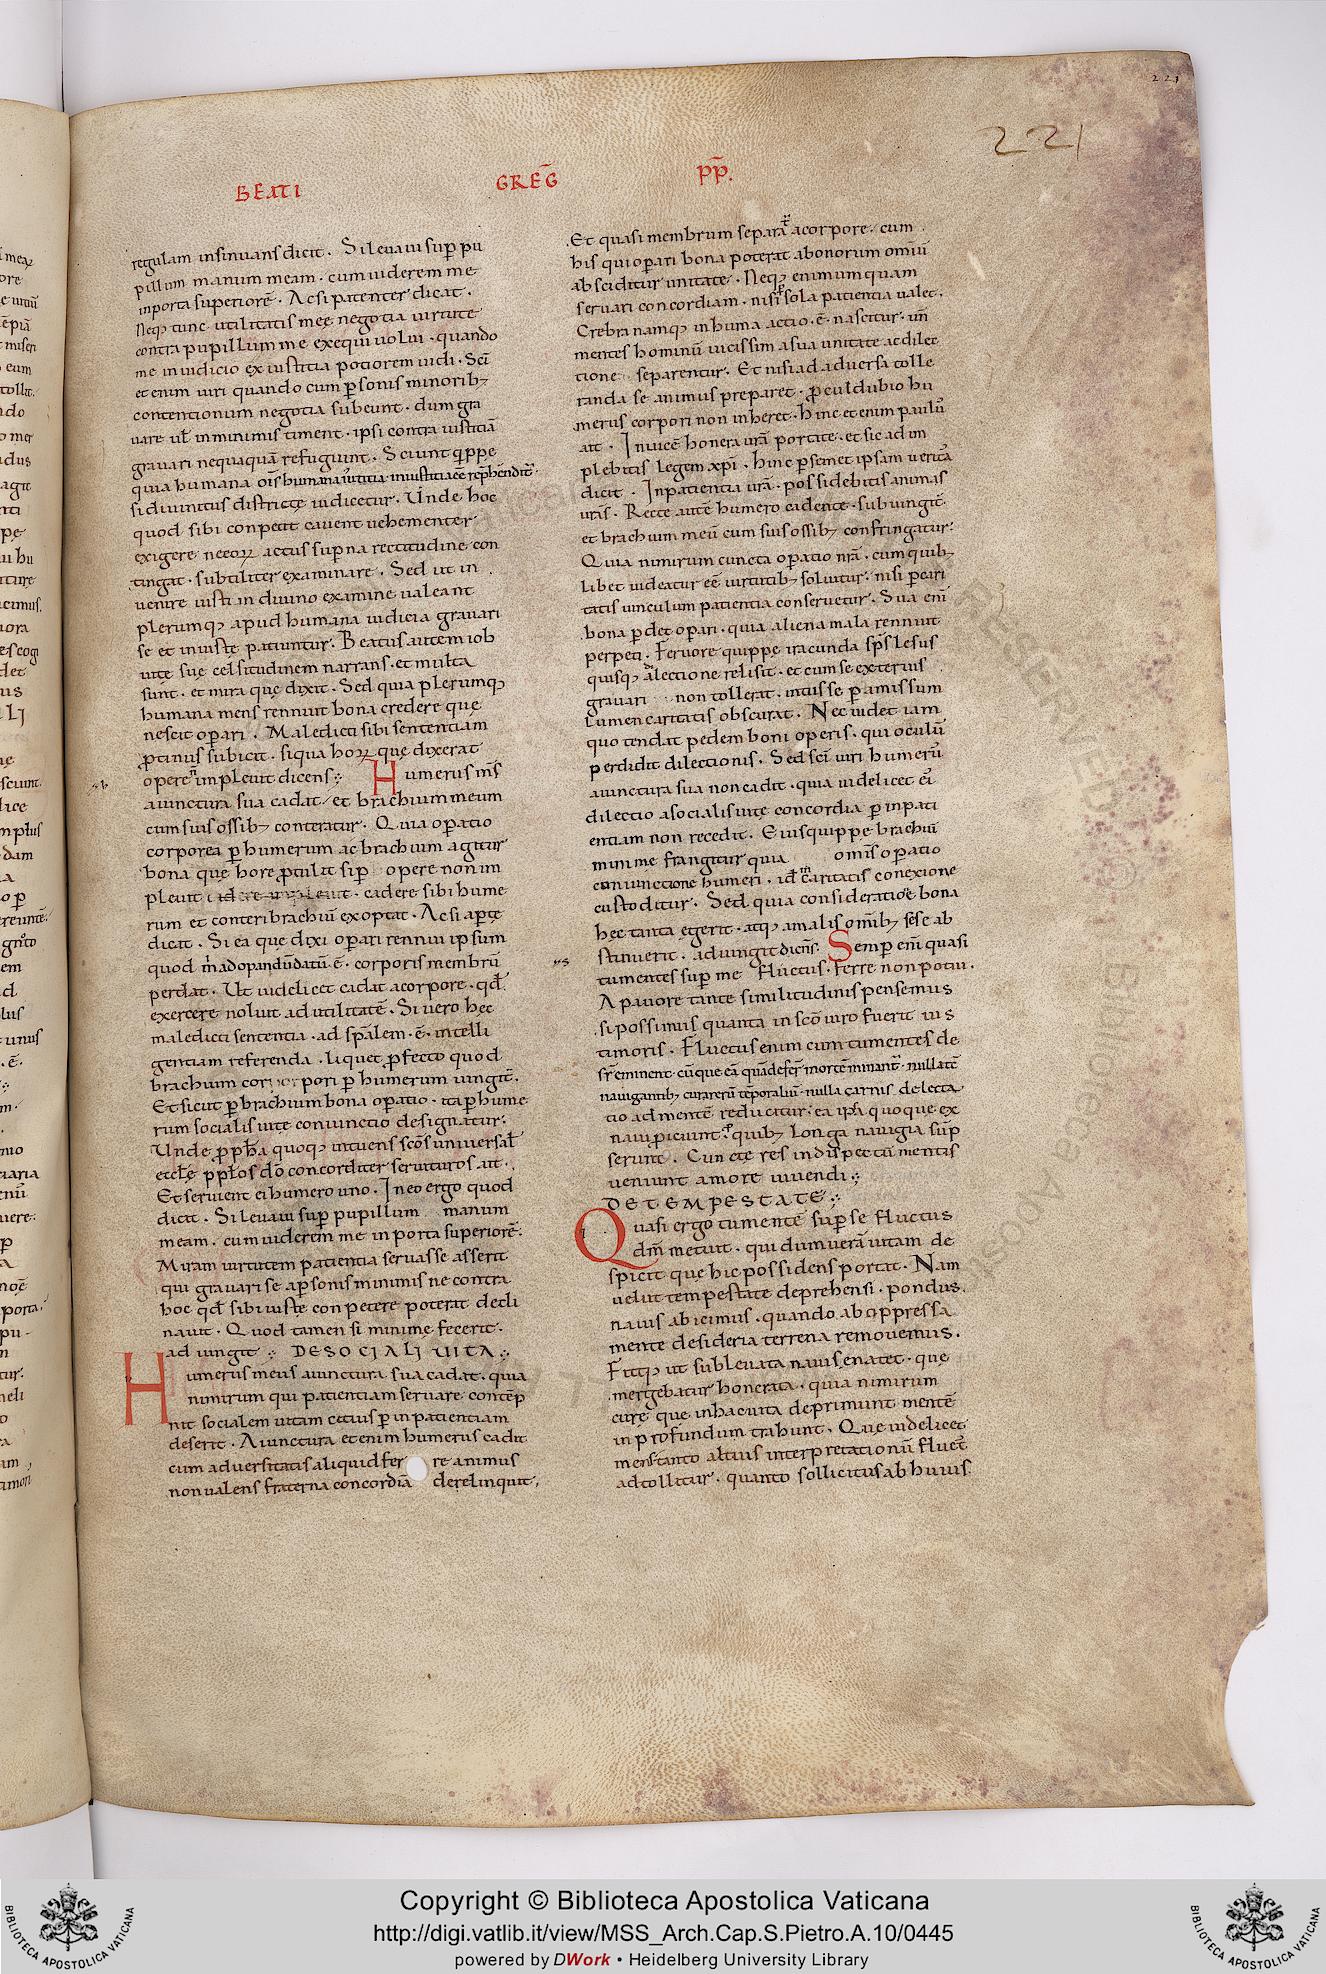 221
221
BEATI GREG̅ PP̅.
regulam insinuans dicit. Si levavi sup̱ pu
pillum manum meam. cum viderem me
inporta superiorē. Acsi patenter dicat.
Neq; tunc utilitatis meę negotia virtute
contra pupillum me exequi volui. quando
me iniudicio ex iustitia potiorem vidi. Sc̄i
etenim viri quando cum p̱sonis minorib;
contentionum negotia subeunt. dum gra
vare ul̄ inminimis timent. ipsi contra iustitiā
gravari nequaquā refugiunt. Sciunt q̱ppe
quia humana om̄s humana iustitia iniustitia eē rep̱henditͬ.
si divinitus districtę iudicetur. Unde hoc
quod sibi conpetit cavent vehementer
exigere neeoꝝ actus sup̱na rectitudine con
tingat. subtiliter examinare. Sed ut in
venire iusti in divino examine valeant
plerumq; apud humana iudicia gravari
se et iniuste patiuntur. Beatus autem iob
vitę suę celsitudinem narrans. et multa
sunt. et mira quę dixit. Sed quia plerumq;
humana mens rennuit bona credere quę
nescit op̱ari. Maledicti sibi sententiam
p̱tinus subicit. siqua hoꝝ quę dixerat
opere n̄ impleuit dicens; Humerus m̄s
aiunctura sua cadat. et brachium meum
cum suis ossib; conteratur. Quia op̱atio
corporea p̱ humerum ac brachium agitur
bona quę hore p̱tulit si p̱ opere non im
pleuit cadere sibi hume
rum et conteri brachiū exoptat. Acsi ap̱tę
dicit. Si ea quę dixi op̱ari rennui ipsum
quod m̄ ad op̱andū datū. ē. corporis membrū
perdat. Ut videlicet cadat acorpore. qd̄
exercere nolui ad utilitatē. Si vero hec
maledicti sententia. ad sp̄alem. ē. intelli
gentiam referenda. liquet p̱fecto quod
brachium corpori p̱ humerum iungitͬ.
Et sicut p̱ brachium bona op̱atio. ita p̱ hume
rum socialis vitę coniunctio designatur.
Unde p̱ph̄a quoq; intuens sc̄os universal̄
eccl̄ę pp̄los d̄o concorditer servituros ait.
Et servient ei humero uno. In eo ergo quod
dicit. Si levavi sup̱ pupillum manum
meam. cum viderem me in porta superiorē.
Miram virtutem patientia servasse asserit
qui gravari se ap̱sonis minimis ne contra
hoc qd̄ sibi iustę conpetere poterat decli
navit. Quod tamen si minimę fecerit.
ad iungit; DE SOCIALI VITA;
Humerus meus aiunctura sua cadat. quia
nimirum qui patientiam servare contēp
nit socialem vitam cetius p̱ inpatientiam
deserit. Aiunctura etenim humerus cadit
cum adversitatis aliquid fer re animus
non valens fraterna concordiā derelinquit;
Et quasi membrum separatͬ acorpore. cum
his qui op̱ari bona poterat abonorum omniū
absciditur unitate. Neq; enim umquam
servari concordiam. nisi p̱ sola patientia valet.
Crebra namq; inhuma actio. ē. nascitur. un̄
mentes hominū vicissim asua unitate ac dilec
tione separentur. Et nisi ad adversa tolle
randa se animus preparet. p̱culdubio hu
merus corpori non inheret. Hinc etenim paulꝰ
ait. Invicē honera vr̄a portate. et sic ad im
plebitis legem xp̄i. Hinc p̱ semet ipsam veritā
dicit. In patientia vr̄a. possidebitis animas
vr̄as. Recte autē humero cadente. subiungitͬ.
et brachium meū cum suis ossib; confringatur.
Quia nimirum cuncta op̱atio nr̄a. cum quib;
libet videatur eē virtutib; solvitur. nisi p̱ cari
tatis vinculum patientia conservetur. Sua enī
bona p̱det op̱ari. quia aliena mala rennuit
perpeti. Fervore quippe iracunda sp̄s lesus
quisq; a dilectione relisit. et cum se exterius
gravari non tollerat. intus se p̱ amissum
lumen caritatis obscurat. Nec videt iam
quo tendat pedem boni operis. qui oculū
perdidit dilectionis. Sed sc̄i viri humerꝰ
aiunctura sua non cadit. quia videlicet ei
dilectio asocialis vite concordia p̱ inpati
entiam non recedit. Eius quippe brachiū
minime frangitur quia om̄is op̱atio
coniunctione humeri. id ē caritatis conexione
custoditur. Sed quia consideratioe bona
hęc tanta egerit. atq; amalis om̄ib; sese ab
stinuerit. adiungit dicn̄s. Semp̱ enī quasi
tumentes sup̱ me fluctus. ferre non potui.
A pavore tante similitudinis pensemus
si possimus quanta in sc̄o viro fuerit vis
timoris. Fluctus enim cum tumentes de
nulla carnis delecta
tio ad mentē reducitur. ea ip̄a quoque ex
navi p̱iciunt. p̱ quib; longa navigia sūp
serunt. Cunctę res in dispectū mentis
veniunt amore vivendi;
DE TEMPESTATE;
Quasi ergo tumente sup̱ se fluctus
dm̄ metuit. qui dum verā vitam de
spicit quę hic possidens portat. Nam
velut tempestate deprehensi. pondus
navis abicimus. quando ab oppressa
mente desideria terrena removemus.
Fitq; ut sublevata navis enatet. quę
mergebatur honerata. quia nimirum
curę quę in hac vita deprimunt mentē
in profundum trahunt. Quę videlicet
mens tanto altius interpretationū fluctͬ
adtollitur. quanto sollicitus ab huius
Copyright © Biblioteca Apostolica Vaticana
http://digi.vatlib.it/view/MSS_Arch.Cap.S.Pietro.A.10/0445
powered by DWork • Heidelberg University Library
BIBLIOTECA APOSTOLICA VATICANA
BIBLIOTECA APOSTOLICA VATICANA